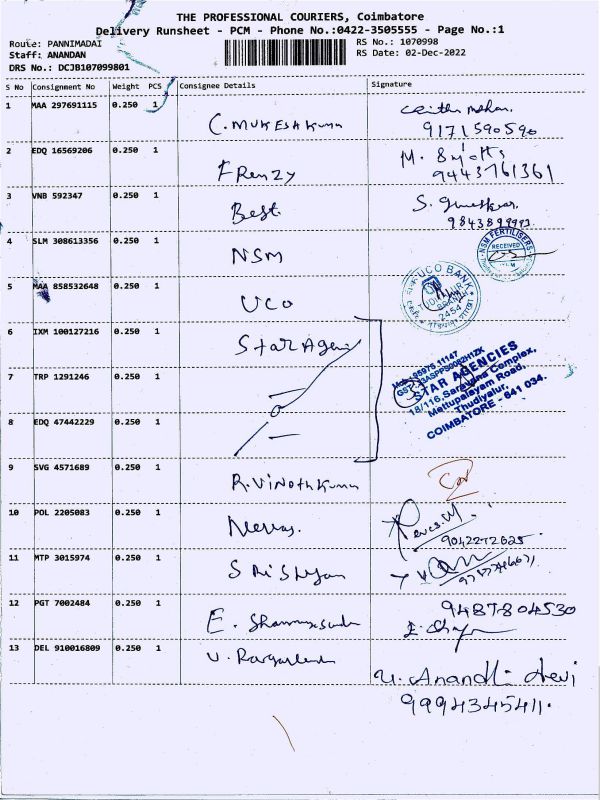 THE PROFESSIONAL COURIERS, Coimbatore
Delivery Runsheet - PCM - Phone No.:0422-3505555 - Page No.:1
Route: PANNIMADAI
RS No.: 1070998
Staff: ANANDAN
RS Date: 02-Dec-2022
DRS No.: DCJB107099801
S No Consignment No Weight PCS Consignee Details Signature
1 MAA 297691115 0.250 1
C. MUKESH Kumar
9171590590
2 EDQ 16569206 0.250 1
FRENZY M.
9443761361
3 VNB 592347 0.250 1
Best. S.
9843899993
4 SLM 308613356 0.250 1
NSM
NSM FERTILISERS
RECEIVED
5 MAA 858532648 0.250 1
UCO
UCO BANK
2454
6 IXM 100127216 0.250 1
Star Agen
STAR AGENCIES
18/116, Saravana Complex,
Mettupalayam Road,
Thudiyalur,
COIMBATORE - 641 034.
7 TRP 1291246 0.250 1
8 EDQ 47442229 0.250 1
9 SVG 4571689 0.250 1
R. Vinoth Kumar
10 POL 2205083 0.250 1
9042272625
11 MTP 3015974 0.250 1
12 PGT 7002484 0.250 1
9487804530
E.
13 DEL 910016809 0.250 1
U.
U. Anandhi devi
9994345411.